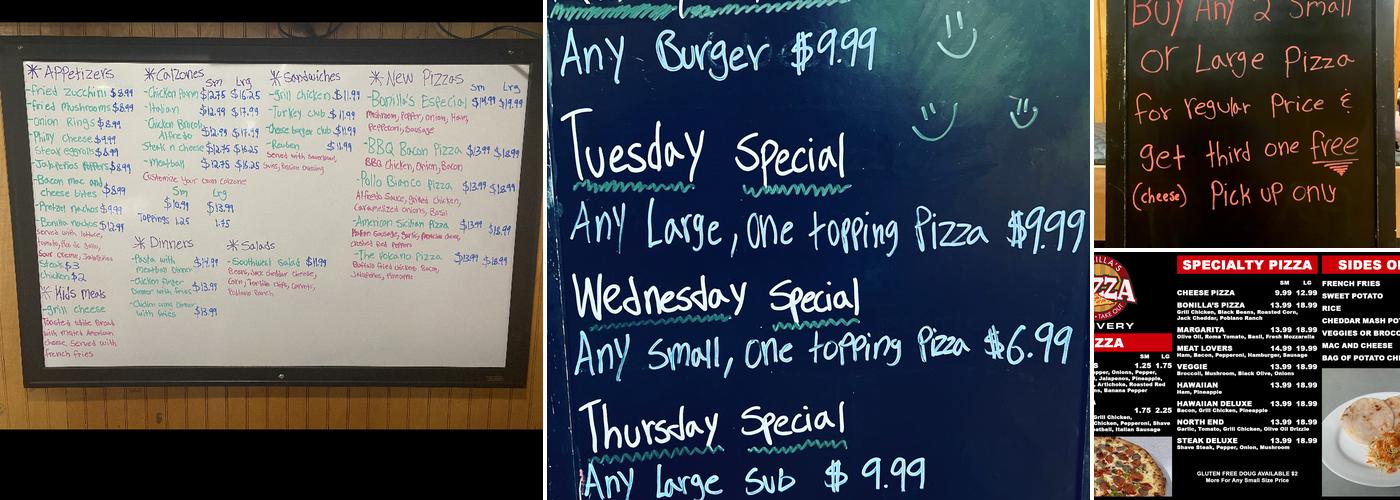 * Appetizers
-fried zucchini $8.99
-fried mushrooms $8.99
-Onion Rings $8.99
-Philly Cheese $9.99
Steak eggrolls $8.99
-Jalapeños Poppers $8.99
-Bacon mac and
cheese bites $8.99
-Pretzel nachos $9.99
-Bonilla nachos $12.99
served with lettuce,
Sour cream, Jalapeños
Steak $3
Chicken $2
* Kids meals
-grill cheese
Toasted white Bread
with melted American
cheese, served with
french fries
* Calzones
Sm Lrg
-Chicken Parm $12.75 $16.25
-Italian $12.99 $17.99
-Chicken Broccoli
Alfredo $12.99 $17.99
Steak n cheese $12.75 $16.25
-Meatball $12.75 $16.25
Customize your own calzone
Sm Lrg
$10.99 $13.99
Toppings 1.25 1.75
* Dinners
-Pasta with
meatball Dinner $14.99
-Chicken finger
Dinner with fries $13.99
-Chicken wing Dinner
with fries $13.99
* Sandwiches
-grill chicken $11.99
-Turkey club $11.99
-Cheese burger club $11.99
-Reuben $11.99
Served with Sauerkraut,
Swiss, Russian Dressing
* Salads
-Southwest Salad $11.99
Beans, Jack cheddar cheese,
Corn, Tortilla chips, Carrots,
Poblano Ranch
* New Pizzas
Sm Lrg
-Bonilla's Especial $14.99 $19.99
Mushroom, Pepper, onion, Ham,
Pepperoni, Sausage
-BBQ Bacon Pizza $13.99 $18.99
BBQ Chicken, Onion, Bacon
-Pollo Bianco Pizza $13.99 $18.99
Alfredo Sauce, grilled Chicken,
Caramelized onions, Basil
-American Sicilian Pizza $13.99 $18.99
Italian Sausage, garlic, Parmesan cheese,
crushed Red Peppers
-The Volcano Pizza $13.99 $18.99
Buffalo fried chicken, Bacon,
Jalapeños,
Any Burger $9.99
Tuesday Special
Any Large, one topping Pizza $9.99
Wednesday Special
Any Small, one topping Pizza $6.99
Thursday Special
Any Large Sub $9.99
Buy Any 2 Small
Or Large Pizza
for regular Price &
get third one free
(cheese) Pick up only
ILLA'S
ZZA
TAKE OUT
VERY
ZZA
SM LG
S 1.25 1.75
pper, Onions, Pepper,
, Jalapenos, Pineapple,
, Artichoke, Roasted Red
ns, Banana Pepper
1.75 2.25
Grill Chicken,
Chicken, Pepperoni, Shave
eatball, Italian Sausage
SPECIALTY PIZZA
SM LG
CHEESE PIZZA 9.99 12.99
BONILLA'S PIZZA 13.99 18.99
Grill Chicken, Black Beans, Roasted Corn,
Jack Cheddar, Poblano Ranch
MARGARITA 13.99 18.99
Olive Oil, Roma Tomato, Basil, Fresh Mozzarella
MEAT LOVERS 14.99 19.99
Ham, Bacon, Pepperoni, Hamburger, Sausage
VEGGIE 13.99 18.99
Broccoli, Mushroom, Black Olive, Onions
HAWAIIAN 13.99 18.99
Ham, Pineapple
HAWAIIAN DELUXE 13.99 18.99
Bacon, Grill Chicken, Pineapple
NORTH END 13.99 18.99
Garlic, Tomato, Grill Chicken, Olive Oil Drizzle
STEAK DELUXE 13.99 18.99
Shave Steak, Pepper, Onion, Mushroom
GLUTEN FREE DOUG AVAILABLE $2
More For Any Small Size Price
SIDES O
FRENCH FRIES
SWEET POTATO
RICE
CHEDDAR MASH POT
VEGGIES OR BROCC
MAC AND CHEESE
BAG OF POTATO CHI